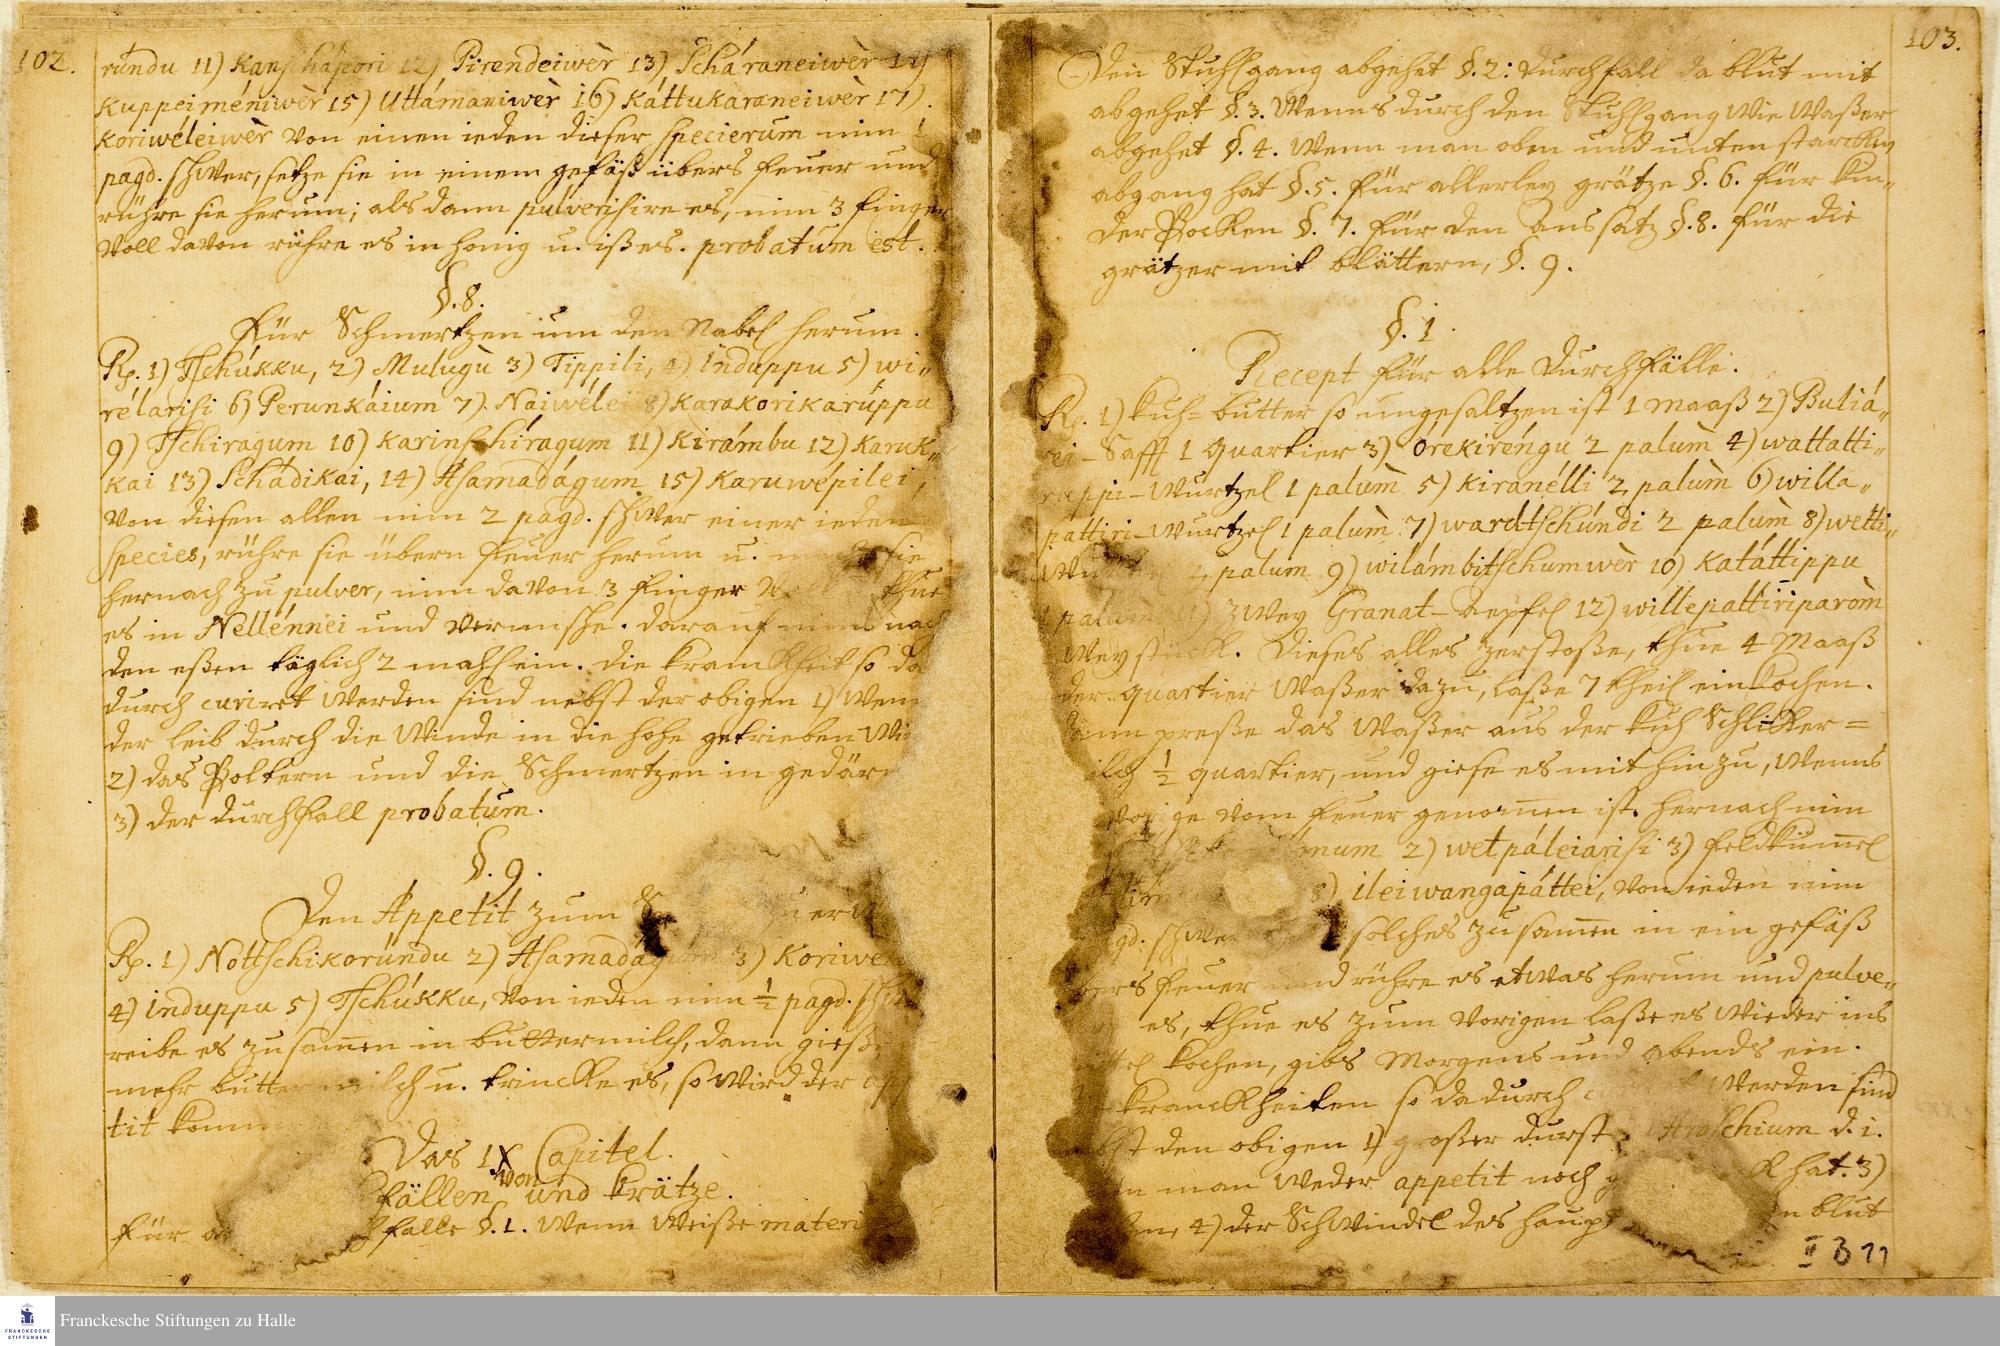 102.
rúndu 11) Kanschápori 12) Pirendeiwèr 13) Scháraneiwèr 14)
Kuppeiméniwèr 15) Uttámaniwèr 16) Káttukaraneiwèr 17)
Koriwéleiwèr Von einen ieden dieser Specierum nim 1
pagd. schwer, setze sie in einem gefäß übers feuer und
rühre sie herum; als dann pulverisire es, nim 3 finger
Voll davon rühre es in honig u. iß es. probatum est.
§. 8.
für Schmertzen um den Nabel herum.
Rp. 1) Tschúkku, 2) Mulugù 3) Tippili, 4) Induppu 5) wi„
rélarisi 6) Perunkáium 7) Naiwélei 8) Karakorikaruppu
9) Tschiragum 10) Karinschíragum 11) Kirámbu 12) Karuk„
kai 13) Schádikai, 14) Asamadágum 15) Karuwépilei,
Von diesen allen nim 2 pagd. schwer einer ieden
Species, rühre sie übern feuer herum u. mache sie
hernach zu pulver, nim davon 3 finger thue
es in Nellénnei und vermische. darauf nach
den eßen täglich 2 mahl ein. die kranckheit so da
durch curiret werden sind nebst der obigen 1) Wenn
der leib durch die Winde in die höhe getrieben
2) das Poltern und die Schmertzen in
3) der durchfall probatum.
§. 9.
Den Appetit zum
Rp. 1) Nottschikorúndu 2) Asamadágum 3) Koriwe
4) induppu 5) Tschúkku, Von ieden nim ½ pagd.
reibe es zusamen in buttermilch, dann gieße
mehr buttermilch u. trincke es, so wird der
tit
Das IX Capitel.
von
fällen und krätze.
für fälle §. 1. Wenn weiße materi
103.
den Stuhlgang abgehet §. 2: durchfall da blut mit
abgehet §. 3. Wenns durch den Stuhlgang wie Waßer
abgehet §. 4. Wenn man oben und unten starcken
abgang hat §. 5. für allerley grätze §. 6. für kin„
der Pocken §. 7. für den Aussatz §. 8. für die
grätzer mit blättern, §. 9.
§. 1.
Recept für alle durchfälle.
Rp. 1) kuh-butter so ungesaltzen ist 1 maaß 2) Buliá„
rei-Safft 1 quartier 3) Órekiréngu 2 palùm 4) wattatti„
ruppi-wurtzel 1 palùm 5) Kiranélli 2 palùm 6) willa„
pattiri-wurtzel 1 palùm 7) wardtschúndi 2 palùm 8) wetti„
palum 9) wilámbitschumwèr 10) Katáttippu
palum zwey Granat-aepfel 12) willepattiriparòm
Dieses alles zerstoße, thue 4 Maaß
der quartier Waßer dazu, laße 7 theil einkochen.
preße das Waßer aus der kuh Schlicker=
½ quartier, und gieße es mit hinzu, wenns
vorige vom feuer genomen ist. hernach nim
2) wetpáleiarisi 3) feldkümel
ileiwangapáttei, von ieden nim
solches zusamen in ein gefäß
feuer und rühre es etwas herum und pulve„
es, thue es zum vorigen laße es wieder ins
kochen, gibs Morgens und abends ein.
kranckheiten so dadurch werden sind
den obigen 1) großer durst Aroschium d. i.
man weder appetit noch hat. 3)
4) der Schwindel des haupt blut
II B 11
Franckesche Stiftungen zu Halle
FRANCKESCHE
STIFTUNGEN